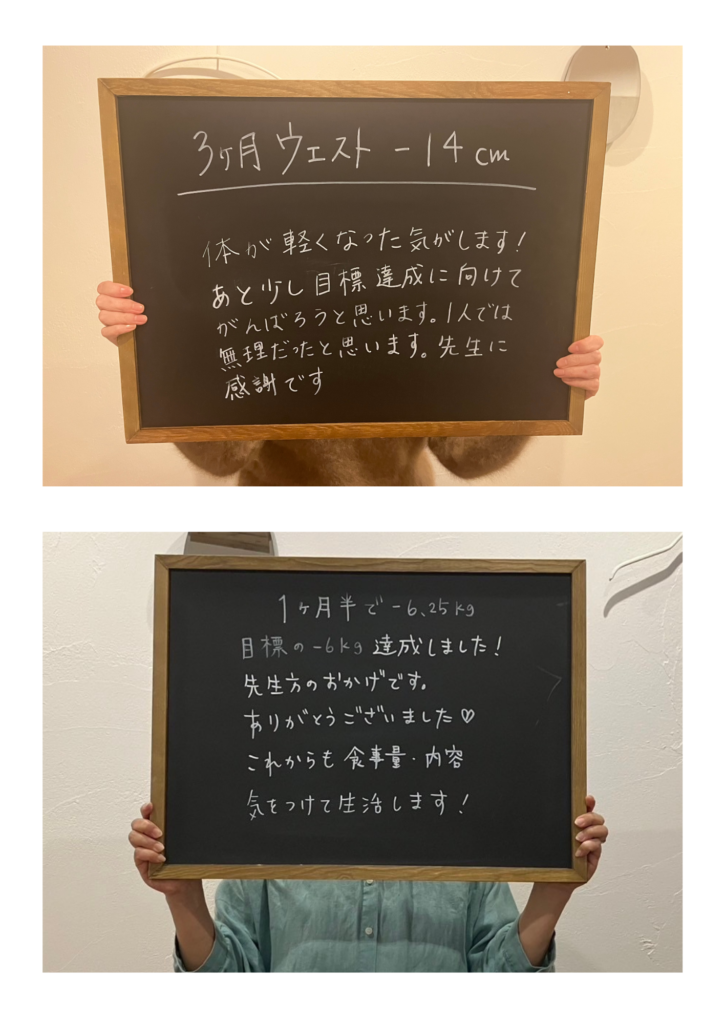 3ヶ月 ウェスト -14cm
体が軽くなった気がします!
あと少し目標達成に向けて
がんばろうと思います。1人では
無理だったと思います。先生に
感謝です
1ヶ月半で-6.25kg
目標の-6kg達成しました!
先生方のおかげです。
ありがとうございました♡
これからも食事量・内容
気をつけて生活します!